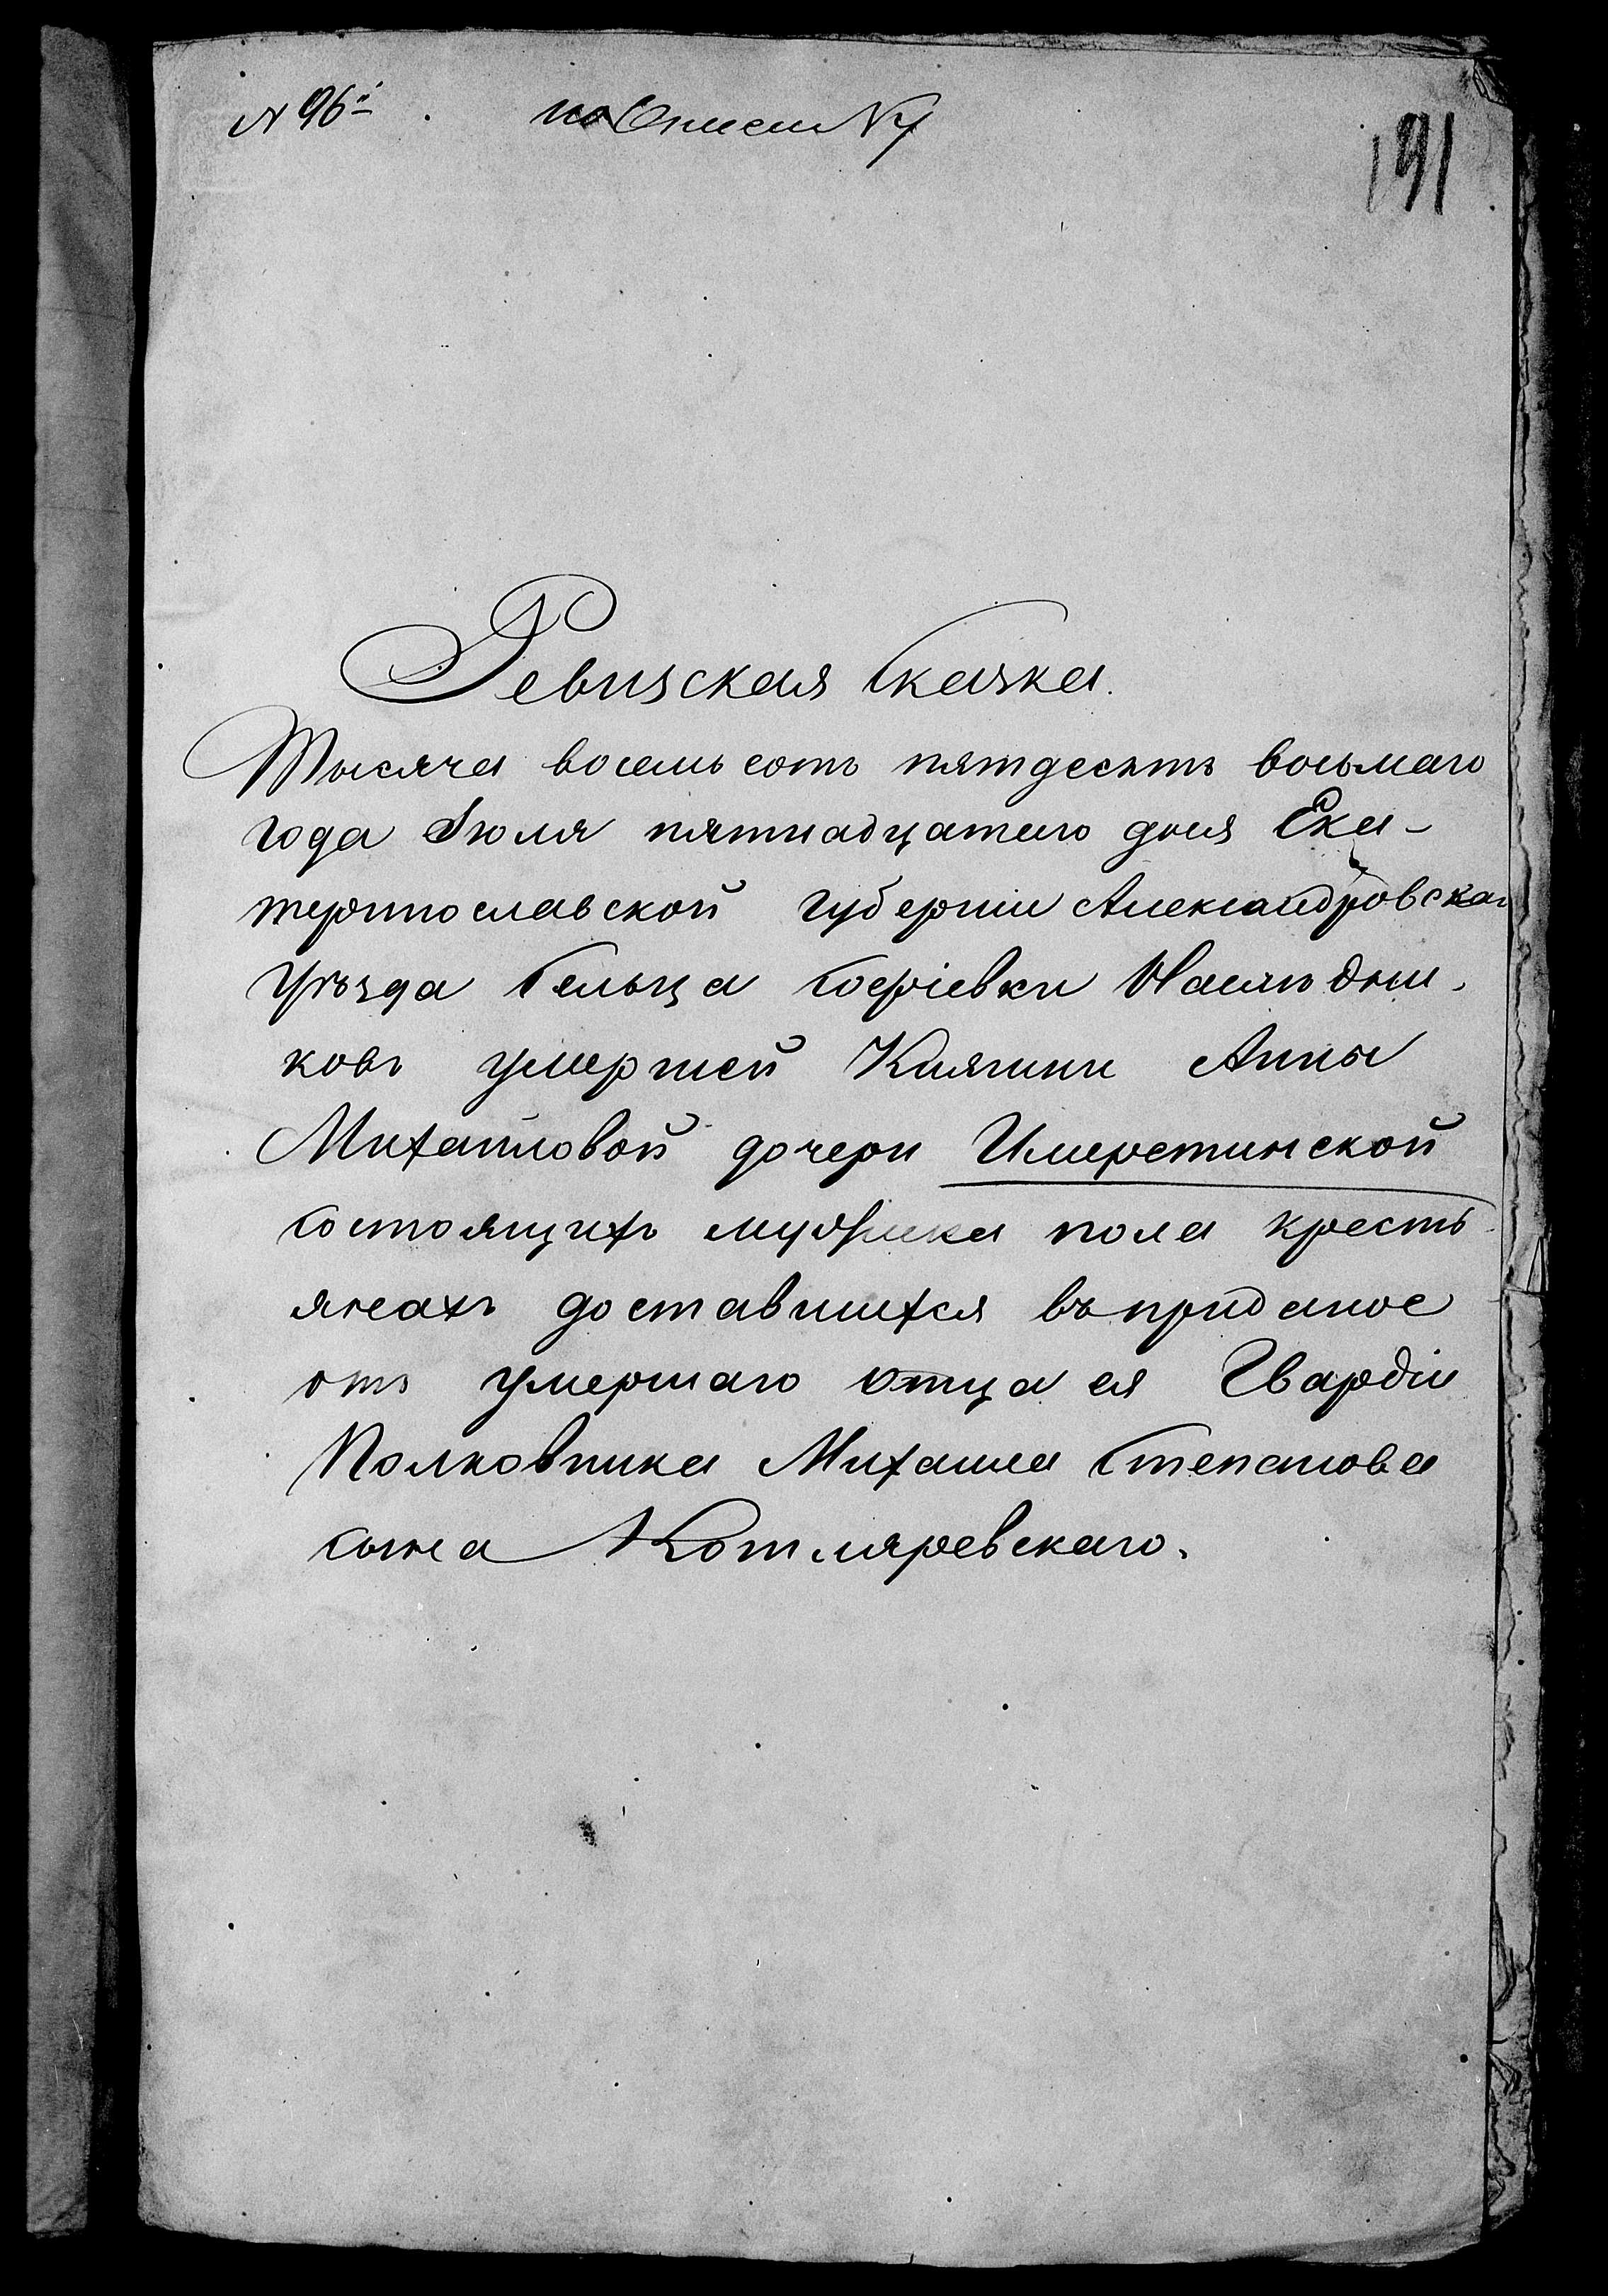 № 96й. по Описи № 7
191
Ревизская Сказка.
Тысяча восемь сотъ пятдесятъ восьмаго
года Іюля пятнадцатаго дня Ека-
теринославской губерніи Александровскаго
Уѣзда Сельца Софіевки Наслѣдни-
ковъ умершей Княгини Анны
Михайловой дочери Имеретинской
состоящихъ мужеска пола кресть
янахъ доставшихся въ приданое
отъ умершаго отца ея Гвардіи
Полковника Михаила Степанова
сына Котляревскаго.